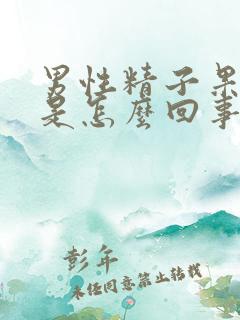 男性精子果
是怎麽回事
彭年
未经同意禁止转载